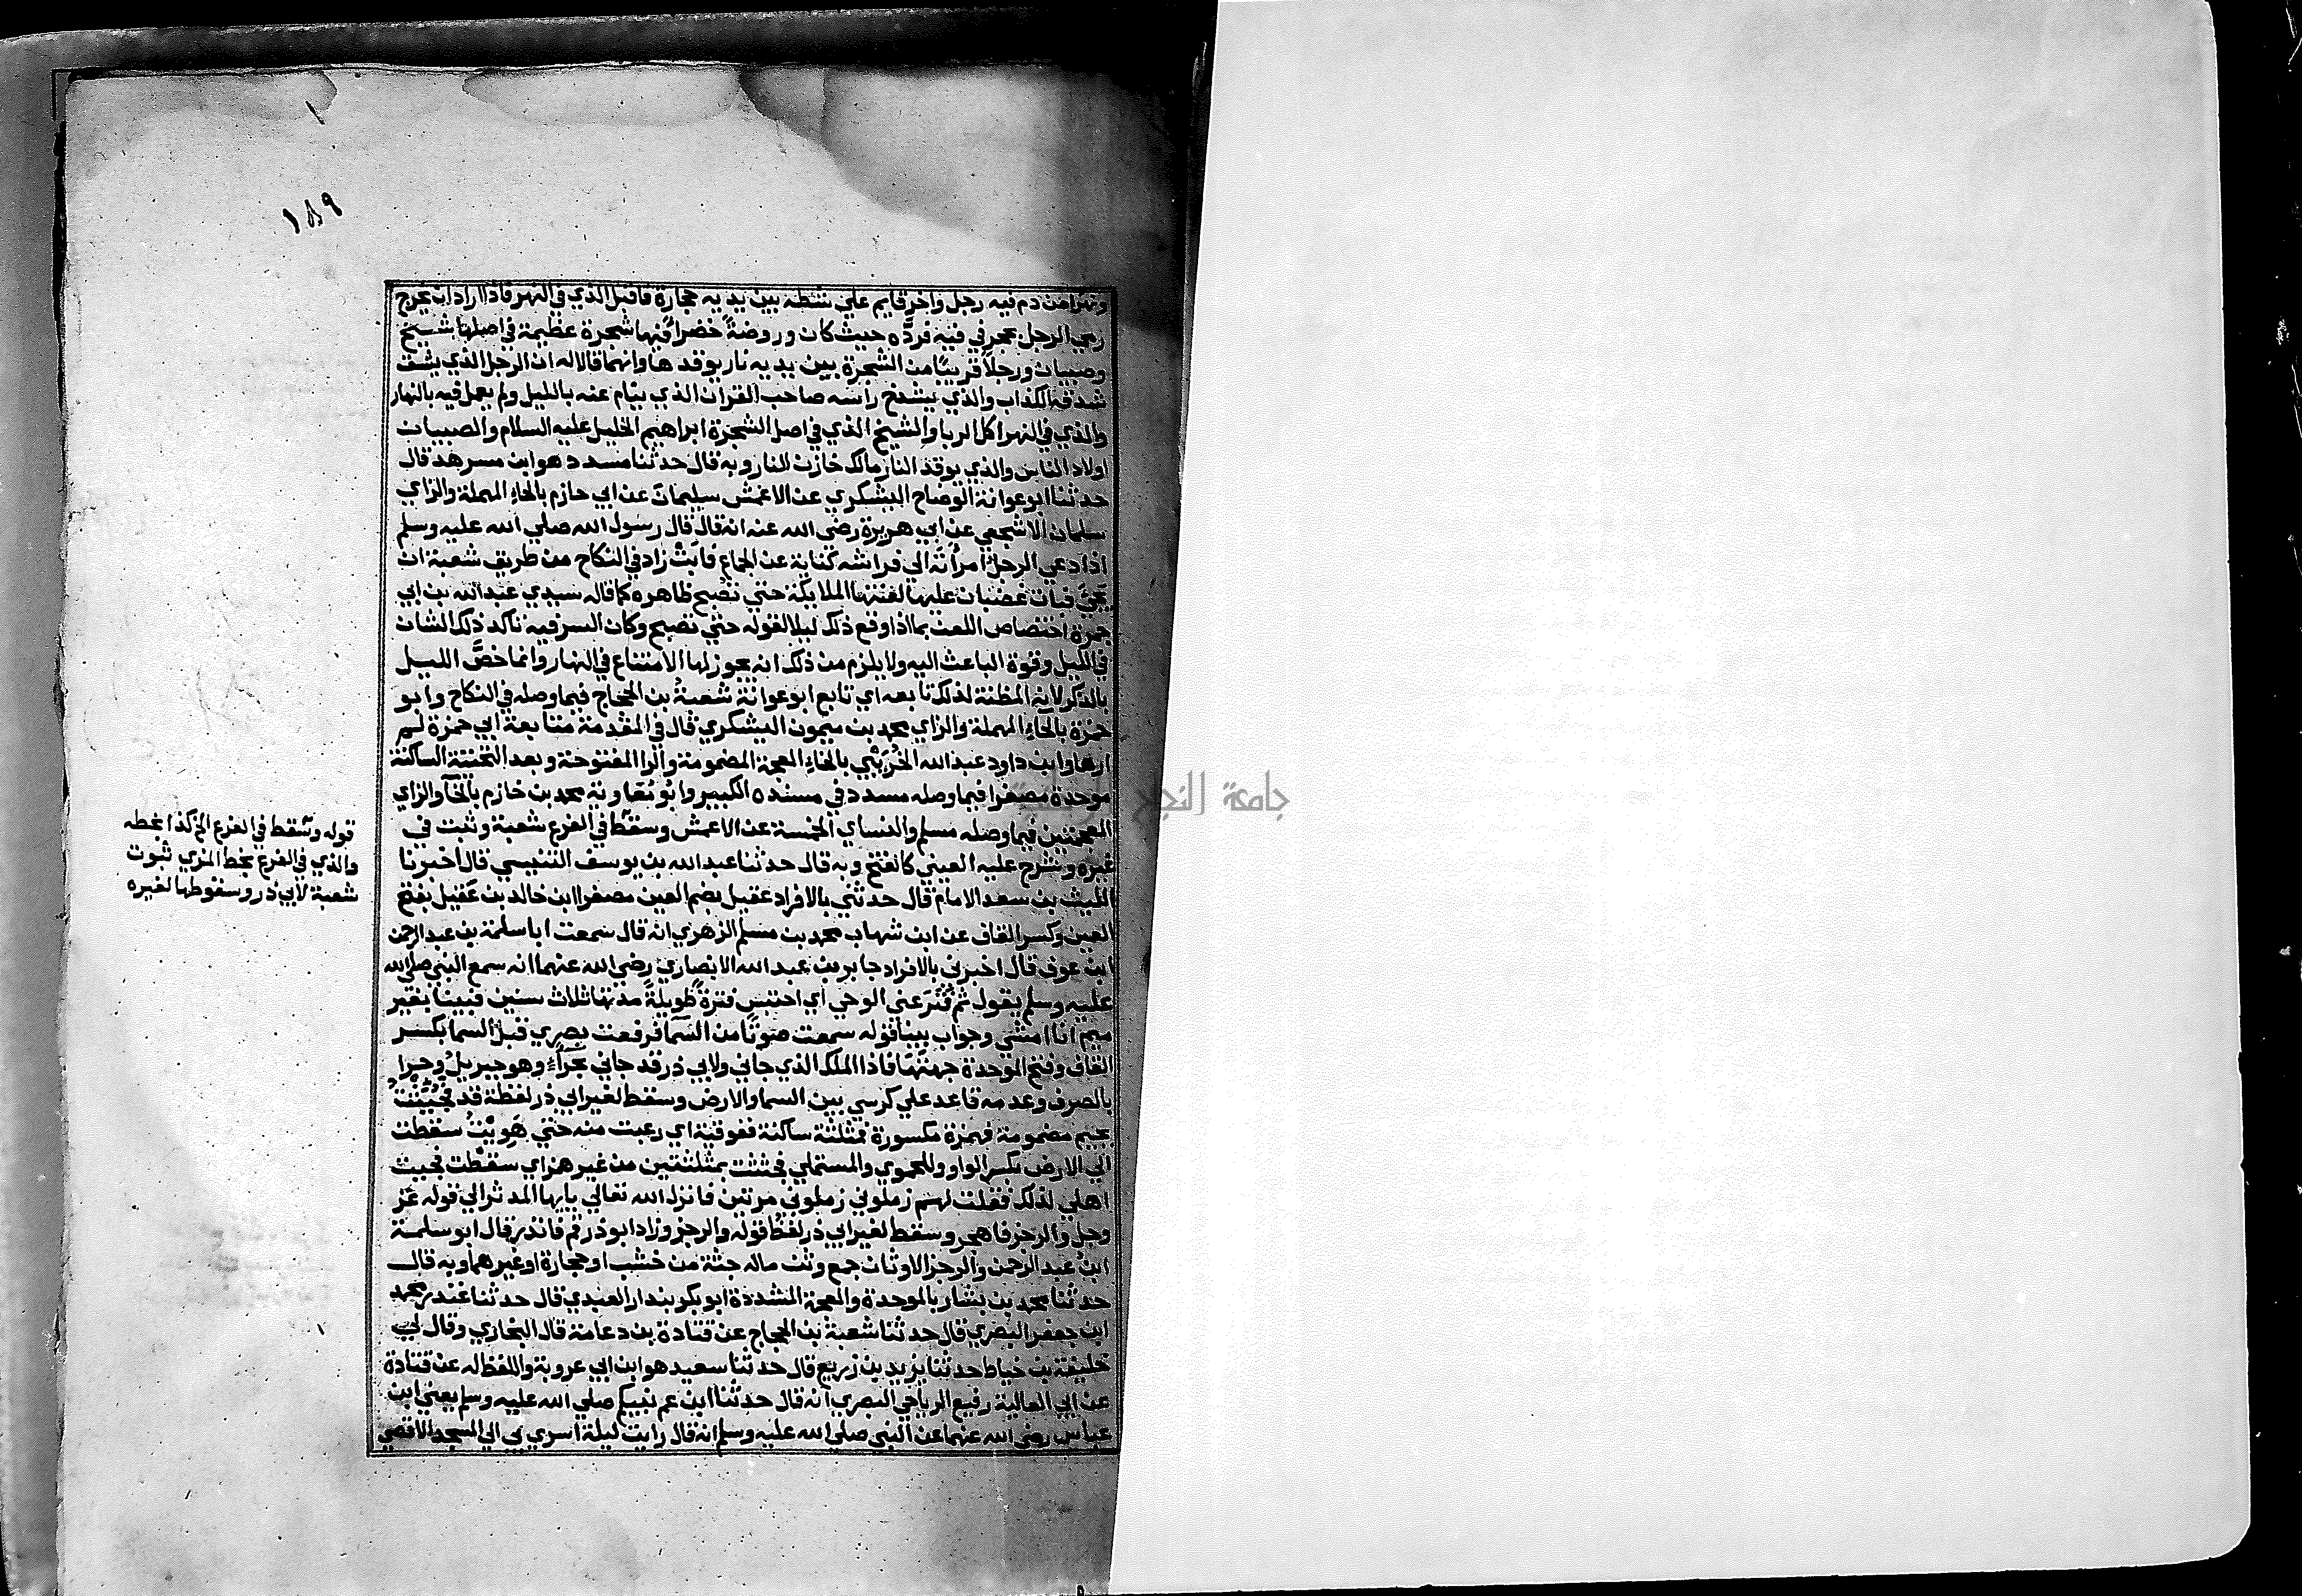 ١٨٩
ونهرا من دم فيه رجل واخر قايم علي شطه بين يديه حجارة فاقبل الذي في النهر فاذا اراد ان يخرج
رمي الرجل بحجر في فيه فردَّه حيث كان وروضةً خضراً فيها شجرة عظيمة في اصلها شيخ
وصبيان ورجلاً قريبًا من الشجرة بين يديه نار يوقدها وانهما قالا له ان الرجل الذي يشق
شدقه الكذاب والذي يشدخ راسه صاحب القران الذي ينام عنه بالليل ولم يعمل فيه بالنهار
والذي في النهر اكل الربا والشيخ الذي في اصل الشجرة ابراهيم الخليل عليه السلام والصبيان
اولاد الناس والذي يوقد النار مالك خازن النار وبه قال حدثنا مسدد هو ابن مسرهد قال
حدثنا ابو عوانة الوضاح اليشكري عن الاعمش سليمان عن ابي حازم بالحاء المهملة والزاي
سلمان الاشجعي عن ابي هريرة رضي الله عنه انه قال قال رسول الله صلي الله عليه وسلم
اذا دعي الرجل امرأته الي فراشه كناية عن الجماع فابت زاد في النكاح من طريق شعبة ان
تجئ فبات غضبان عليها لعنتها الملايكة حتي تصبح ظاهره كما قاله سيدي عبد الله بن ابي
جمرة اختصاص اللعن بما اذا وقع ذلك ليلا لقوله حتي تصبح وكان السر فيه تاكد ذلك الشان
في الليل وقوة الباعث اليه ولا يلزم من ذلك انه يجوز لها الامتناع في النهار وانما خصَّ الليل
بالذكر لانه المظنة لذلك تابعه اي تابع ابو عوانة شعبة بن الحجاج فيما وصله في النكاح وابو
حمزة بالحاء المهملة والزاي محمد بن ميمون اليشكري قال في المقدمة متابعة ابي حمزة لم
ارها وابن داود عبد الله الخُرَيْبي بالخاء المعجمة المضمومة والرا المفتوحة وبعد التحتية الساكنة
موحدة مصغرا فيما وصله مسدد في مسنده الكبير وابو معاوية محمد بن خازم بالخآ والزاي
المعجمتين فيما وصله مسلم والنساي الخمسة عن الاعمش وسقط في الفرع شعبة وثبت في
غيره وشرح عليه العيني كالفتح وبه قال حدثنا عبد الله بن يوسف التنيسي قال اخبرنا
الليث بن سعد الامام قال حدثني بالافراد عقيل بضم العين مصغرا ابن خالد بن عَقيل بفتح
العين وكسر القاف عن ابن شهاب محمد بن مسلم الزهري انه قال سمعت ابا سلمة بن عبد الرحمن
ابن عوف قال اخبرني بالافراد جابر بن عبد الله الانصاري رضي الله عنهما انه سمع النبي صلي الله
عليه وسلم يقول ثم فَتَرَ عني الوحي اي احتبس فترةً طويلةً مدتها ثلاث سنين فبينا بغير
ميم انا امشي وجواب بينا قوله سمعت صوتًا من السمآ فرفعت بصري قبل السما بكسر
القاف وفتح الموحدة جهتَها فاذا الملك الذي جاني ولابي ذر قد جاني بحرآء وهو جبريل وحرا
بالصرف وعدمه قاعد علي كرسي بين السما والارض وسقط لغير ابي ذر لفظة قد فجُئِثْتُ
بجيم مضمومة فهمزة مكسورة فمثلثة ساكنة ففوقية اي رعبت منه حتي هَوِيْتُ سقطت
الي الارض بكسر الواو وللحموي والمستملي فجثثت بمثلثتين من غير همز اي سقطت فجيت
اهلي لذلك فقلت لهم زملوني زملوني مرتين فانزل الله تعالي يايها المدثر الي قوله عز
وجل والرجز فاهجر وسقط لغير ابي ذر لفظ قوله والرجز وزاد ابو ذر قم فانذر قال ابو سلمة
ابن عبد الرحمن والرجز الاوثان جمع وثن ماله جثة من خشب او حجارة او غيرهما وبه قال
حدثنا محمد بن بشار بالموحدة والمعجمة المشددة ابو بكر بندار العبدي قال حدثنا غندر محمد
ابن جعفر البصري قال حدثنا شعبة بن الحجاج عن قتادة بن دعامة قال البخاري وقال لي
خليفة بن خياط حدثنا يزيد بن زريع قال حدثنا سعيد هو ابن ابي عروبة واللفظ له عن قتادة
عن ابي العالية رفيع الرياحي البصري انه قال حدثنا ابن عم نبيكم صلي الله عليه وسلم يعني ابن
عباس رضي الله عنهما عن النبي صلي الله عليه وسلم انه قال رايت ليلة اسري بي الي المسجد الاقصي
قوله وسقط في الفرع الخ كذا بخطه
والذي في الفرع بخط المزي ثبوت
شعبة لابي ذر وسقوطها لغيره
جامعة النجاح